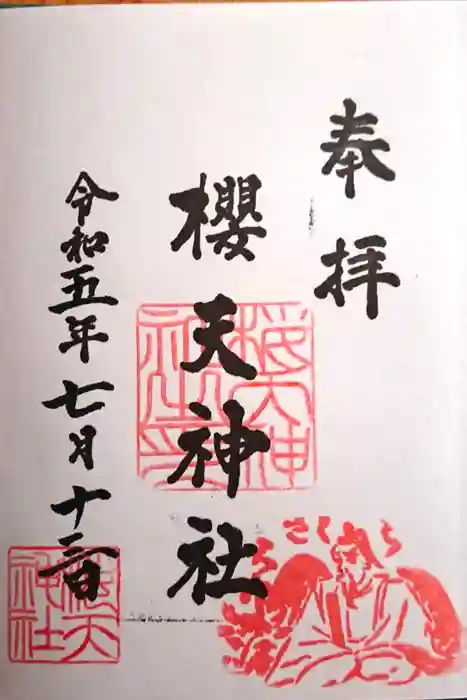 奉拝
櫻天神社
櫻天神
社之印
令和五年七月十二日
櫻天
神社
さくら